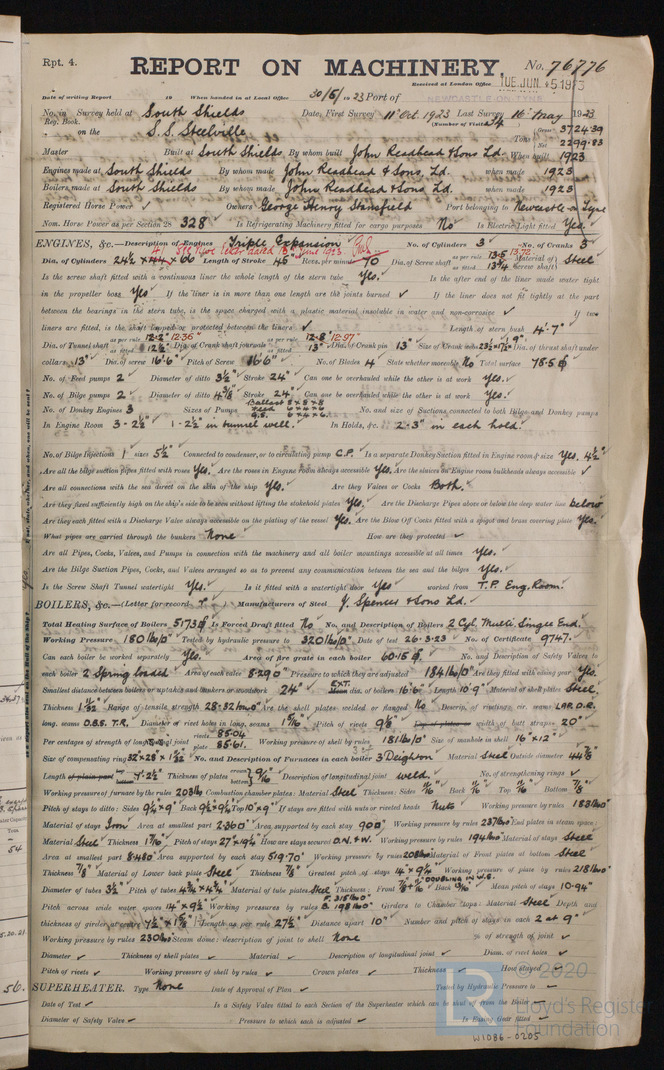 Rpt. 4.
REPORT ON MACHINERY. No. 76776
Received at London Office TUE. JUN. 5 1923
Date of writing Report 19 When handed in at Local Office 30/5/1923 Port of NEWCASTLE-ON-TYNE
No. in Survey held at South Shields Date, First Survey 11th Oct. 1923 Last Survey 16th May 1923
Reg. Book. (Number of Visits
on the S.S. Steelville Tons Gross 3724.39
Net 2299.83
Master Built at South Shields By whom built John Readhead & Sons Ld. When built 1923
Engines made at South Shields By whom made John Readhead & Sons, Ld. when made 1923
Boilers made at South Shields By whom made John Readhead & Sons Ld. when made 1923
Registered Horse Power Owners George Henry Stansfield Port belonging to Newcastle o Tyne
Nom. Horse Power as per Section 28 328 Is Refrigerating Machinery fitted for cargo purposes No Is Electric Light fitted Yes.
ENGINES, &c.—Description of Engines Triple Expansion No. of Cylinders 3 No. of Cranks 3
Dia. of Cylinders Length of Stroke 45" Revs. per minute 70 Dia. of Screw shaft as per rule 13.5 13.72 as fitted 13¾ Material of screw shaft Steel
Is the screw shaft fitted with a continuous liner the whole length of the stern tube Yes. Is the after end of the liner made water tight
in the propeller boss Yes If the liner is in more than one length are the joints burned ✓ If the liner does not fit tightly at the part
between the bearings in the stern tube, is the space charged with a plastic material insoluble in water and non-corrosive ✓ If two
liners are fitted, is the shaft lapped or protected between the liners ✓ Length of stern bush 4'-7"
Dia. of Tunnel shaft as per rule 12.2" 12.36" as fitted 12½" Dia. of Crank shaft journals as per rule 12.8" 12.97" as fitted 13" Dia. of Crank pin 13" Size of Crank webs Dia. of thrust shaft under
collars 13" Dia. of screw 16'6" Pitch of Screw 16'6" No. of Blades 4 State whether moveable No Total surface 78.5
No. of Feed pumps 2 Diameter of ditto 3½" Stroke 24" Can one be overhauled while the other is at work Yes.
No. of Bilge pumps 2 Diameter of ditto 4⅜" Stroke 24" Can one be overhauled while the other is at work Yes.
No. of Donkey Engines 3 Sizes of Pumps Ballast 8 x 8 x 8 Feed 6 x 4 x 6 No. and size of Suctions connected to both Bilge and Donkey pumps
In Engine Room 3 - 2½" 1 - 2½" in tunnel well. In Holds, &c. 2 - 3" in each hold.
No. of Bilge Injections 1 sizes 5½" Connected to condenser, or to circulating pump C.P. Is a separate Donkey Suction fitted in Engine room & size Yes. 4½"
Are all the bilge suction pipes fitted with roses Yes. Are the roses in Engine room always accessible Yes. Are the sluices on Engine room bulkheads always accessible ✓
Are all connections with the sea direct on the skin of the ship Yes. Are they Valves or Cocks Both.
Are they fixed sufficiently high on the ship's side to be seen without lifting the stokehold plates Yes. Are the Discharge Pipes above or below the deep water line below
Are they each fitted with a Discharge Valve always accessible on the plating of the vessel Yes. Are the Blow Off Cocks fitted with a spigot and brass covering plate Yes.
What pipes are carried through the bunkers None How are they protected ✓
Are all Pipes, Cocks, Valves, and Pumps in connection with the machinery and all boiler mountings accessible at all times Yes.
Are the Bilge Suction Pipes, Cocks, and Valves arranged so as to prevent any communication between the sea and the bilges Yes.
Is the Screw Shaft Tunnel watertight Yes. Is it fitted with a watertight door Yes worked from T.P. Eng. Room.
BOILERS, &c.—(Letter for record ) Manufacturers of Steel J. Spencer & Sons Ld.
Total Heating Surface of Boilers 5173 Is Forced Draft fitted No No. and Description of Boilers 2 Cyl. Multi. Single End.
Working Pressure 180 lbs Tested by hydraulic pressure to 320 lbs Date of test 26.3.23 No. of Certificate 9747.
Can each boiler be worked separately Yes. Area of fire grate in each boiler 60.15 No. and Description of Safety Valves to
each boiler 2 Spring loaded Area of each valve 8.29 Pressure to which they are adjusted 184 lbs Are they fitted with easing gear Yes.
Smallest distance between boilers or uptakes and bunkers or woodwork 24" EXT. dia. of boilers 16'6" Length 10'9" Material of shell plates Steel.
Thickness 1 Range of tensile strength 28-32 tons Are the shell plates welded or flanged No Descrip. of riveting: cir. seams LAP. D.R.
long. seams D.B.S. T.R. Diameter of rivet holes in long. seams Pitch of rivets 9⅛" width of butt straps 20"
Per centages of strength of longitudinal joint rivets 85.04 plate 85.61. Working pressure of shell by rules 181 lbs Size of manhole in shell 16" x 12"
Size of compensating ring No. and Description of Furnaces in each boiler 3 Deighton Material Steel Outside diameter 44⅛"
Length of plain part Thickness of plates 9/16 Description of longitudinal joint weld. No. of strengthening rings ✓
Working pressure of furnace by the rules 203 lbs Combustion chamber plates: Material Steel Thickness: Sides Back Top Bottom ⅞"
Pitch of stays to ditto: Sides Back Top 10" x 9" If stays are fitted with nuts or riveted heads Nuts Working pressure by rules 183 lbs
Material of stays Iron Area at smallest part 2.36 Area supported by each stay 90 Working pressure by rules 237 lbs End plates in steam space:
Material Steel Thickness Pitch of stays How are stays secured D.N.W. Working pressure by rules 194 lbs Material of stays Steel
Area at smallest part 8.48 Area supported by each stay 519.70 Working pressure by rules 208 lbs Material of Front plates at bottom Steel
Thickness ⅞" Material of Lower back plate Steel Thickness ⅞" Greatest pitch of stays Working pressure of plate by rules 218 lbs
Diameter of tubes 3½" Pitch of tubes Material of tube plates Steel Thickness: Front Back Mean pitch of stays 10.94"
Pitch across wide water spaces 14" x 9½" Working pressures by rules F. 315 lbs B. 198 lbs Girders to Chamber tops: Material Steel Depth and
thickness of girder at centre Length as per rule 27½ Distance apart 10" Number and pitch of stays in each 2 at 9"
Working pressure by rules 230 lbs Steam dome: description of joint to shell None % of strength of joint ✓
Diameter ✓ Thickness of shell plates ✓ Material ✓ Description of longitudinal joint ✓ Diam. of rivet holes ✓
Pitch of rivets ✓ Working pressure of shell by rules ✓ Crown plates ✓ Thickness ✓ How stayed ✓
SUPERHEATER. Type None Date of Approval of Plan ✓ Tested by Hydraulic Pressure to
Date of Test ✓ Is a Safety Valve fitted to each Section of the Superheater which can be shut off from the Boiler
Diameter of Safety Valve ✓ Pressure to which each is adjusted ✓ Is Easing Gear fitted
© 2020
Lloyd's Register
Foundation
W1086-0205